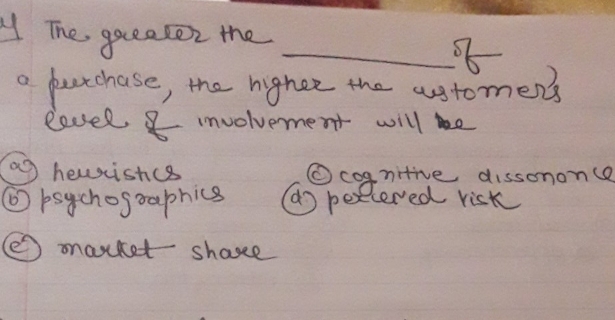 The greater the ________ of
a purchase, the higher the customer's
level of involvement will be
(a) heuristics (c) cognitive dissonance
(b) psychographics (d) perceived risk
(e) market share